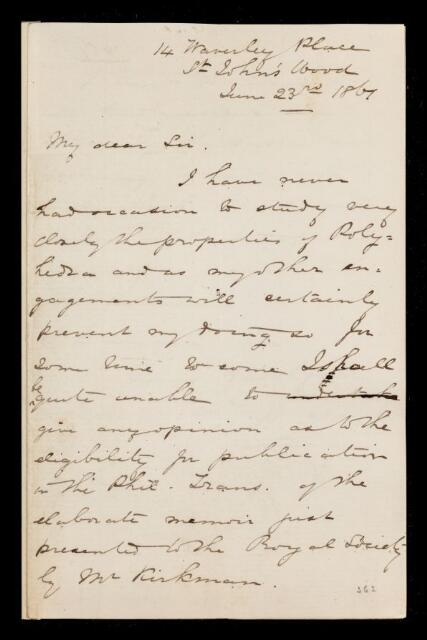 14 Waverley Place
St John's Wood
June 23rd 1861
My dear Sir.
I have never
had occasion to study very
closely the properties of Poly=
hedra and as my other en-
gagements will certainly
prevent my doing so for
some time to come I shall
be
quite unable to undertake
give any opinion as to the
eligibility for publication
in the Phil. Trans. of the
elaborate memoir just
presented to the Royal Society
by Mr Kirkman.
362